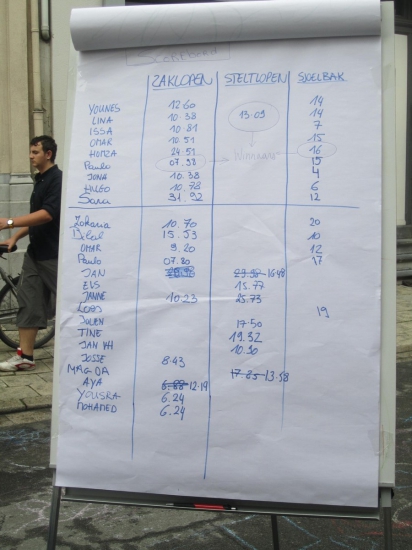 Scorebord
ZAKLOPEN STELTLOPEN SJOELBAK
YOUNES 12.60 14
LINA 10.38 13.09 14
ISSA 10.81 7
OMAR 10.51 15
HOMZA 24.51 16
Paulo 07.98 Winnaar 15
JONA 10.38 4
HUGO 10.78 6
Sara 31.92 12
Zoharia 10.70 20
Delal 15.53 10
OMAR 9.20 12
Paulo 07.80 17
JAN 16.48
EVS 15.77
JANNE 10.23 25.73
LOES 19
JOLEN 17.50
TINE 19.32
JAN VH 10.90
JOSSE 8.43
MAGDA 17.85 13.58
AYA 6.88 12.19
YOUSRA 6.24
MOHAMED 6.24